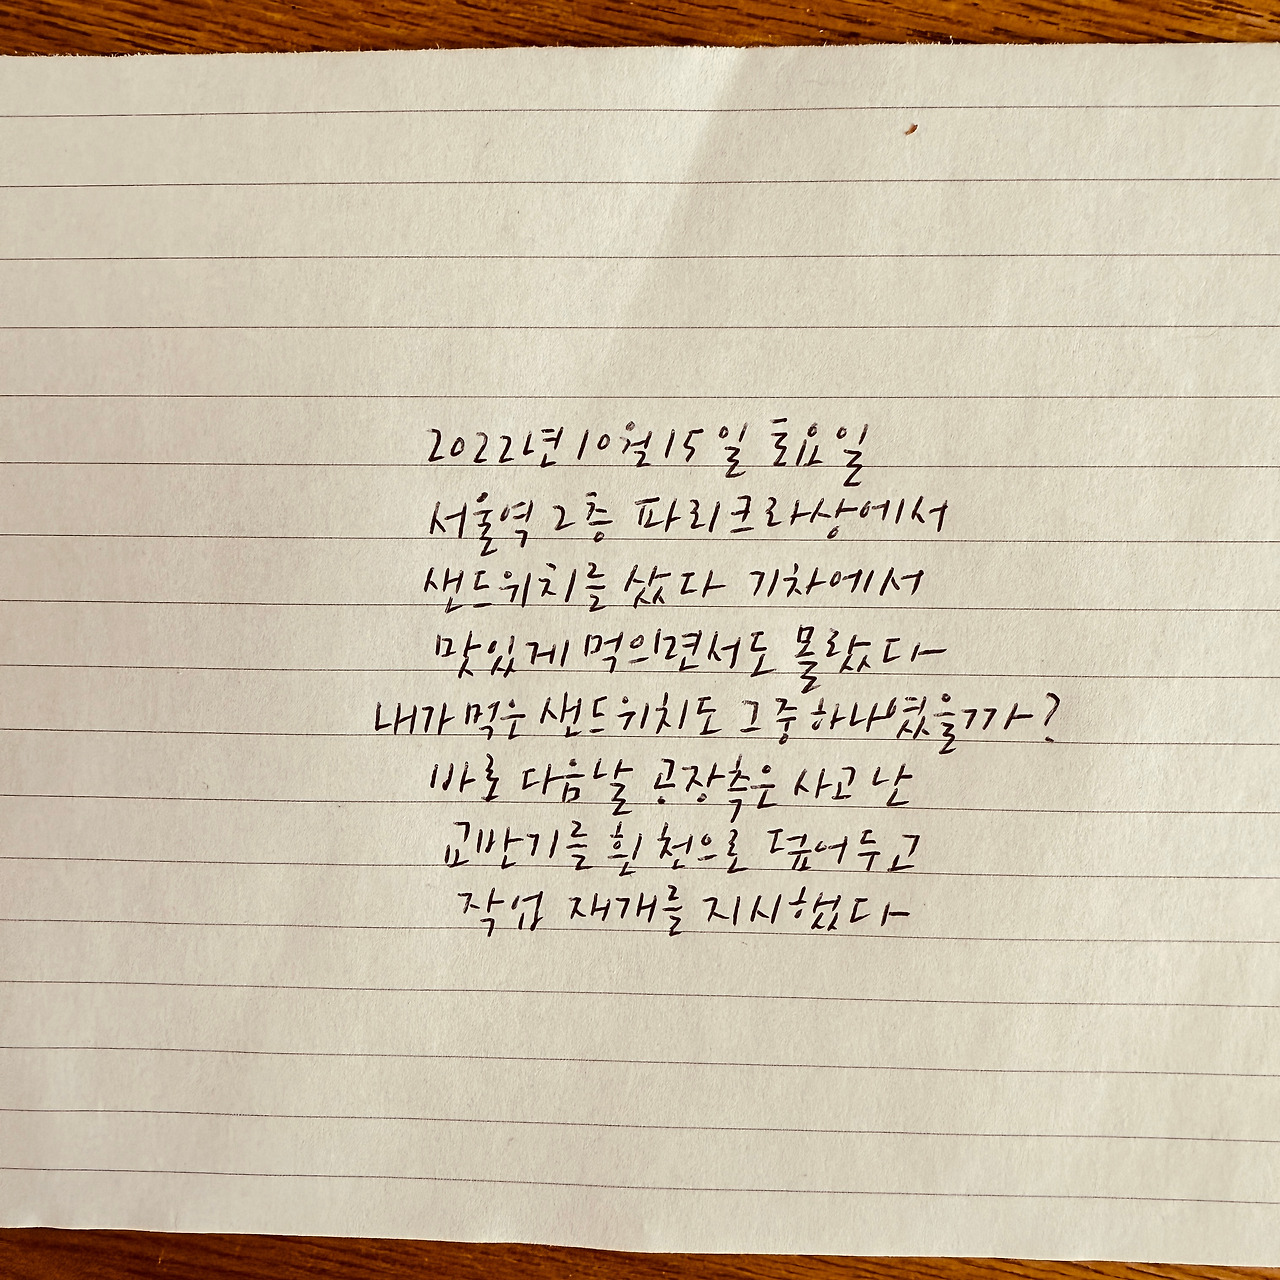 2022년 10월 15일 토요일
서울역 2층 파리크라상에서
샌드위치를 샀다 기차에서
맛있게 먹으면서도 몰랐다
내가 먹은 샌드위치도 그중 하나였을까?
바로 다음날 공장측은 사고 난
교반기를 흰 천으로 덮어두고
작업 재개를 지시했다